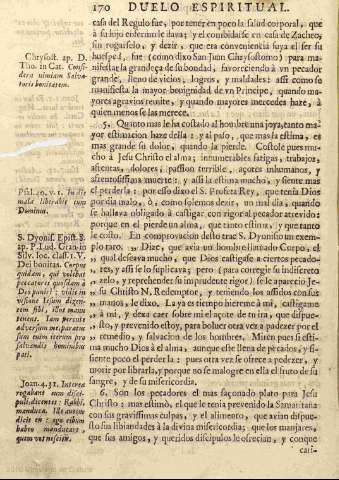 170 DUELO ESPIRITUAL.
casa del Regulo fue, por tener en poco la salud corporal, que
à su hijo enfermo le dava; y el combidarse en casa de Zacheo,
sin rogarselo, y dezir, que era conveniencia suya el ser su
huesped, fue (como dixo San Juan Chrysostomo) para ma-
nifestar la grandeza de su bondad, favoreciendo à vn pecador
grande, lleno de vicios, logros, y maldades: assi como se
manifiesta la mayor benignidad de vn Principe, quando ma-
yores agravios remite, y quando mayores mercedes haze, à
quien menos se las merece.
5. Quinto mas le ha costado al hombre una joya, tanto ma-
yor estimacion haze della: y al paso, que mas la estima, es
mas grande su dolor, quando la pierde. Costole pues mu-
cho à Jesu Christo el alma; innumerables fatigas, trabajos,
afrentas, dolores; passion terrible, açotes inhumanos, y
afrentosissima muerte: y assi la estima mucho, y siente mas
el perderla: por esso dixo el S. Profeta Rey, que tenia Dios
por dia malo, ò, como solemos dezir, un mal dia, quando
se hallava obligado à castigar con rigor al pecador atrevido:
porque en el pierde un alma, que tanto estima, y que tanto
le costò. En comprovacion desto trae S. Dyonisio un exem-
plo raro. „ Dize, que avia un hombre llamado Corpo, el
„ qual deseava mucho, que Dios castigasse a ciertos pecado-
„ res, y assi se lo suplicava; pero (para corregir su indiscreto
„ zelo, y reprehender su imprudente rigor) se le apareciò Je-
„ su Christo N. Redemptor, y teniendo los assidos con sus
„ manos, le dixo. La ya es tiempo hiereme à mi, castigame
„ à mi, y dexa caer sobre mi el açote de tu ira, que dispue-
„ sto, y prevenido estoy, para bolver otra vez a padezer por el
„ remedio, y salvacion de los hombres. Miren pues si esti-
ma mucho Dios à el alma, aunque este llena de pecados, y si-
siente poco el perderla: pues otra vez se ofrece a padezer, y
morir por librarla, y porque no se malogre en ella el fruto de su
sangre, y de su misericordia.
6. Son los pecadores el mas saçonado plato para Jesu
Christo: mas estimò, el que le tenia prevenido la Samaritana
con sus gravissimas culpas, y el alimento, que avian dispue-
sto sus liviandades à la divina misericordia; que los manjares,
que sus amigos, y queridos discipulos le ofrecian, y conque
cari-
Chrysost. ap. D.
Tho. in Cat. Consi-
dera nimiam Salva-
toris bonitatem.
Psal. 40. v. 1. In die
mala liberabit eum
Dominus.
S. Dyonis. Epist. 8.
ap. P. Lud. Gran. in
Silv. loc. class. 1. V.
Dei bonitas. Corpus
quidam, qui volebat
peccatores quosdam à
Deo puniri: vidit in
visione Jesum dicen-
tem sibi, illos manu
tenens. Iam percute
adversum me, paratus
sum enim iterum pro
salvandis hominibus
pati.
Joan. 4. 31. Interea
rogabant eum disci-
puli dicentes: Rabbi,
manduca. Ille autem
dicit eis: ego cibum
habeo manducare,
quem vos nescitis.